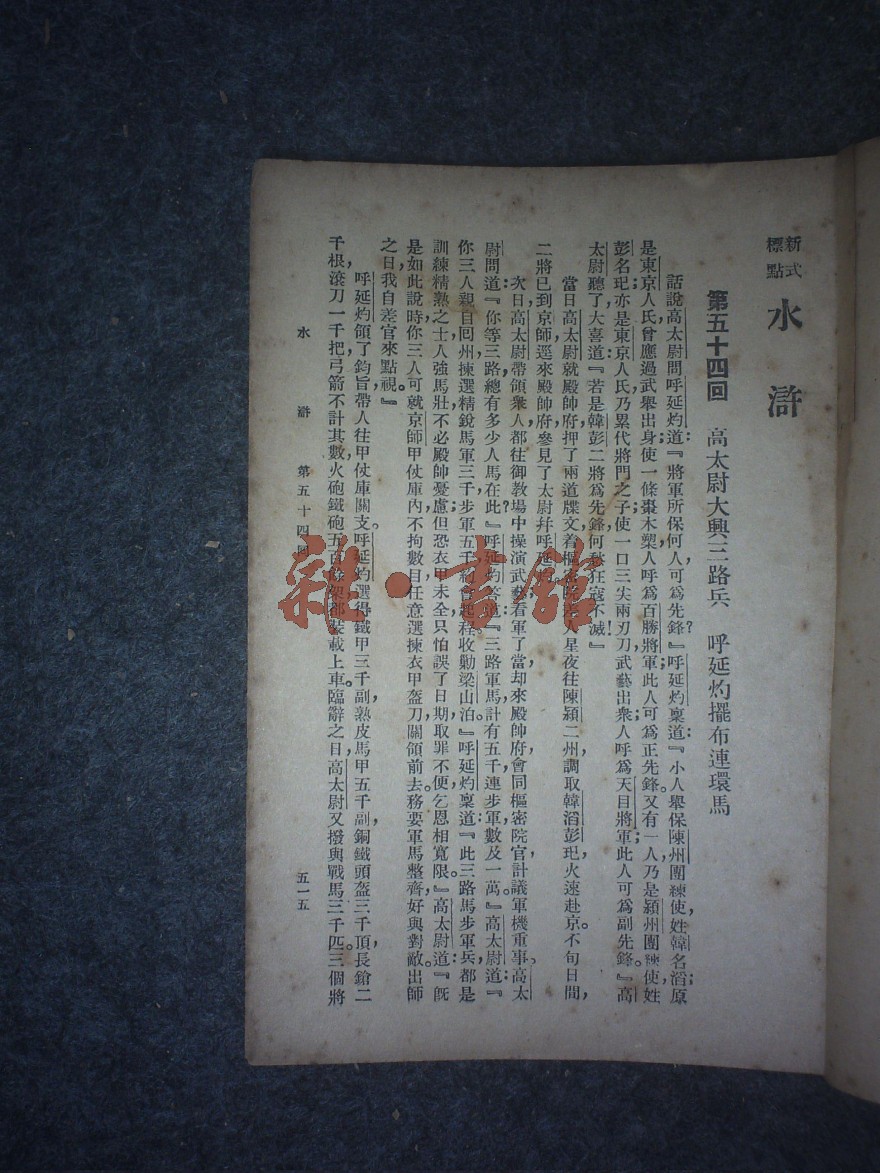 新式標點 水滸
第五十四回 高太尉大興三路兵 呼延灼擺布連環馬
話說高太尉問呼延灼道:『將軍所保何人,可爲先鋒?』呼延灼稟道:『小人舉保陳州團練使,姓韓,名滔,原
是東京人氏;曾應過武舉出身;使一條棗木槊;人呼爲百勝將軍;此人可爲正先鋒。又有一人,乃是潁州團練使,姓
彭,名玘,亦是東京人氏;乃累代將門之子;使一口三尖兩刃刀,武藝出衆;人呼爲天目將軍;此人可爲副先鋒。』高
太尉聽了,大喜道:『若是韓彭二將爲先鋒,何愁狂寇不滅!』
當日高太尉就殿帥府押了兩道牒文,着樞密院差人星夜往陳潁二州調取韓滔彭玘火速赴京。不旬日間,
二將已到京師,逕來殿帥府參見了太尉幷呼延灼。
次日,高太尉帶領衆人都往御教場中操演武藝;看軍了當,却來殿帥府會同樞密院官計議軍機重事。高太
尉問道:『你等三路總有多少人馬在此?』呼延灼答道:『三路軍馬計有五千;連步軍數及一萬。』高太尉道:『
你三人親自回州揀選精銳馬軍三千,步軍五千,約會起程,收勦梁山泊。』呼延灼稟道:『此三路馬步軍兵都是
訓練精熟之士,人強馬壯,不必殿帥憂慮;但恐衣甲未全,只怕誤了日期,取罪不便,乞恩相寬限。』高太尉道:『旣
是如此說時,你三人可就京師甲仗庫內,不拘數目,任意選揀衣甲盔刀,關領前去。務要軍馬整齊,好與對敵。出師
之日,我自差官來點視。』
呼延灼領了鈞旨,帶人往甲仗庫關支。呼延灼選得鐵甲三千副,熟皮馬甲五千副,銅鐵頭盔三千頂,長鎗二
千根,滾刀一千把,弓箭不計其數,火砲鐵砲五百餘架,都裝載上車。臨辭之日,高太尉又撥與戰馬三千匹。三個將
水滸 第五十四回 五一五
雜·書館